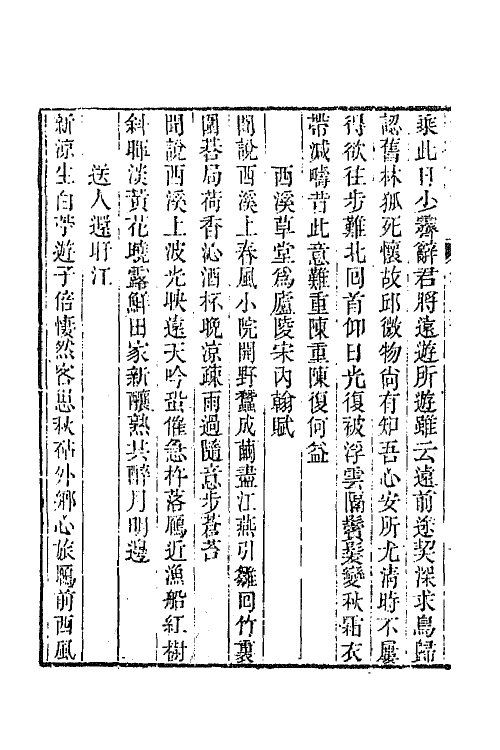 乘此日少霽辭君將遠遊所遊雖云遠前途契深求鳥歸
認舊林狐死懷故邱微物尚有知吾心安所尤淸時不屢
得欲往步難北回首仰日光復被浮雲隔鬢髮變秋霜衣
帶減疇昔此意難重陳重陳復何益
西溪草堂爲廬陵宋內翰賦
聞說西溪上春風小院開野蠶成繭盡江燕引雛回竹裏
圍碁局荷香沁酒杯晚涼疎雨過隨意步蒼苔
聞說西溪上波光映遠天吟蛩催急杵落鴈近漁船紅樹
斜暉淡黃花曉露鮮田家新釀熟共醉月明邊
送人還盱江
新涼生白苧遊子倍悽然客思秋砧外鄉心旅鴈前西風